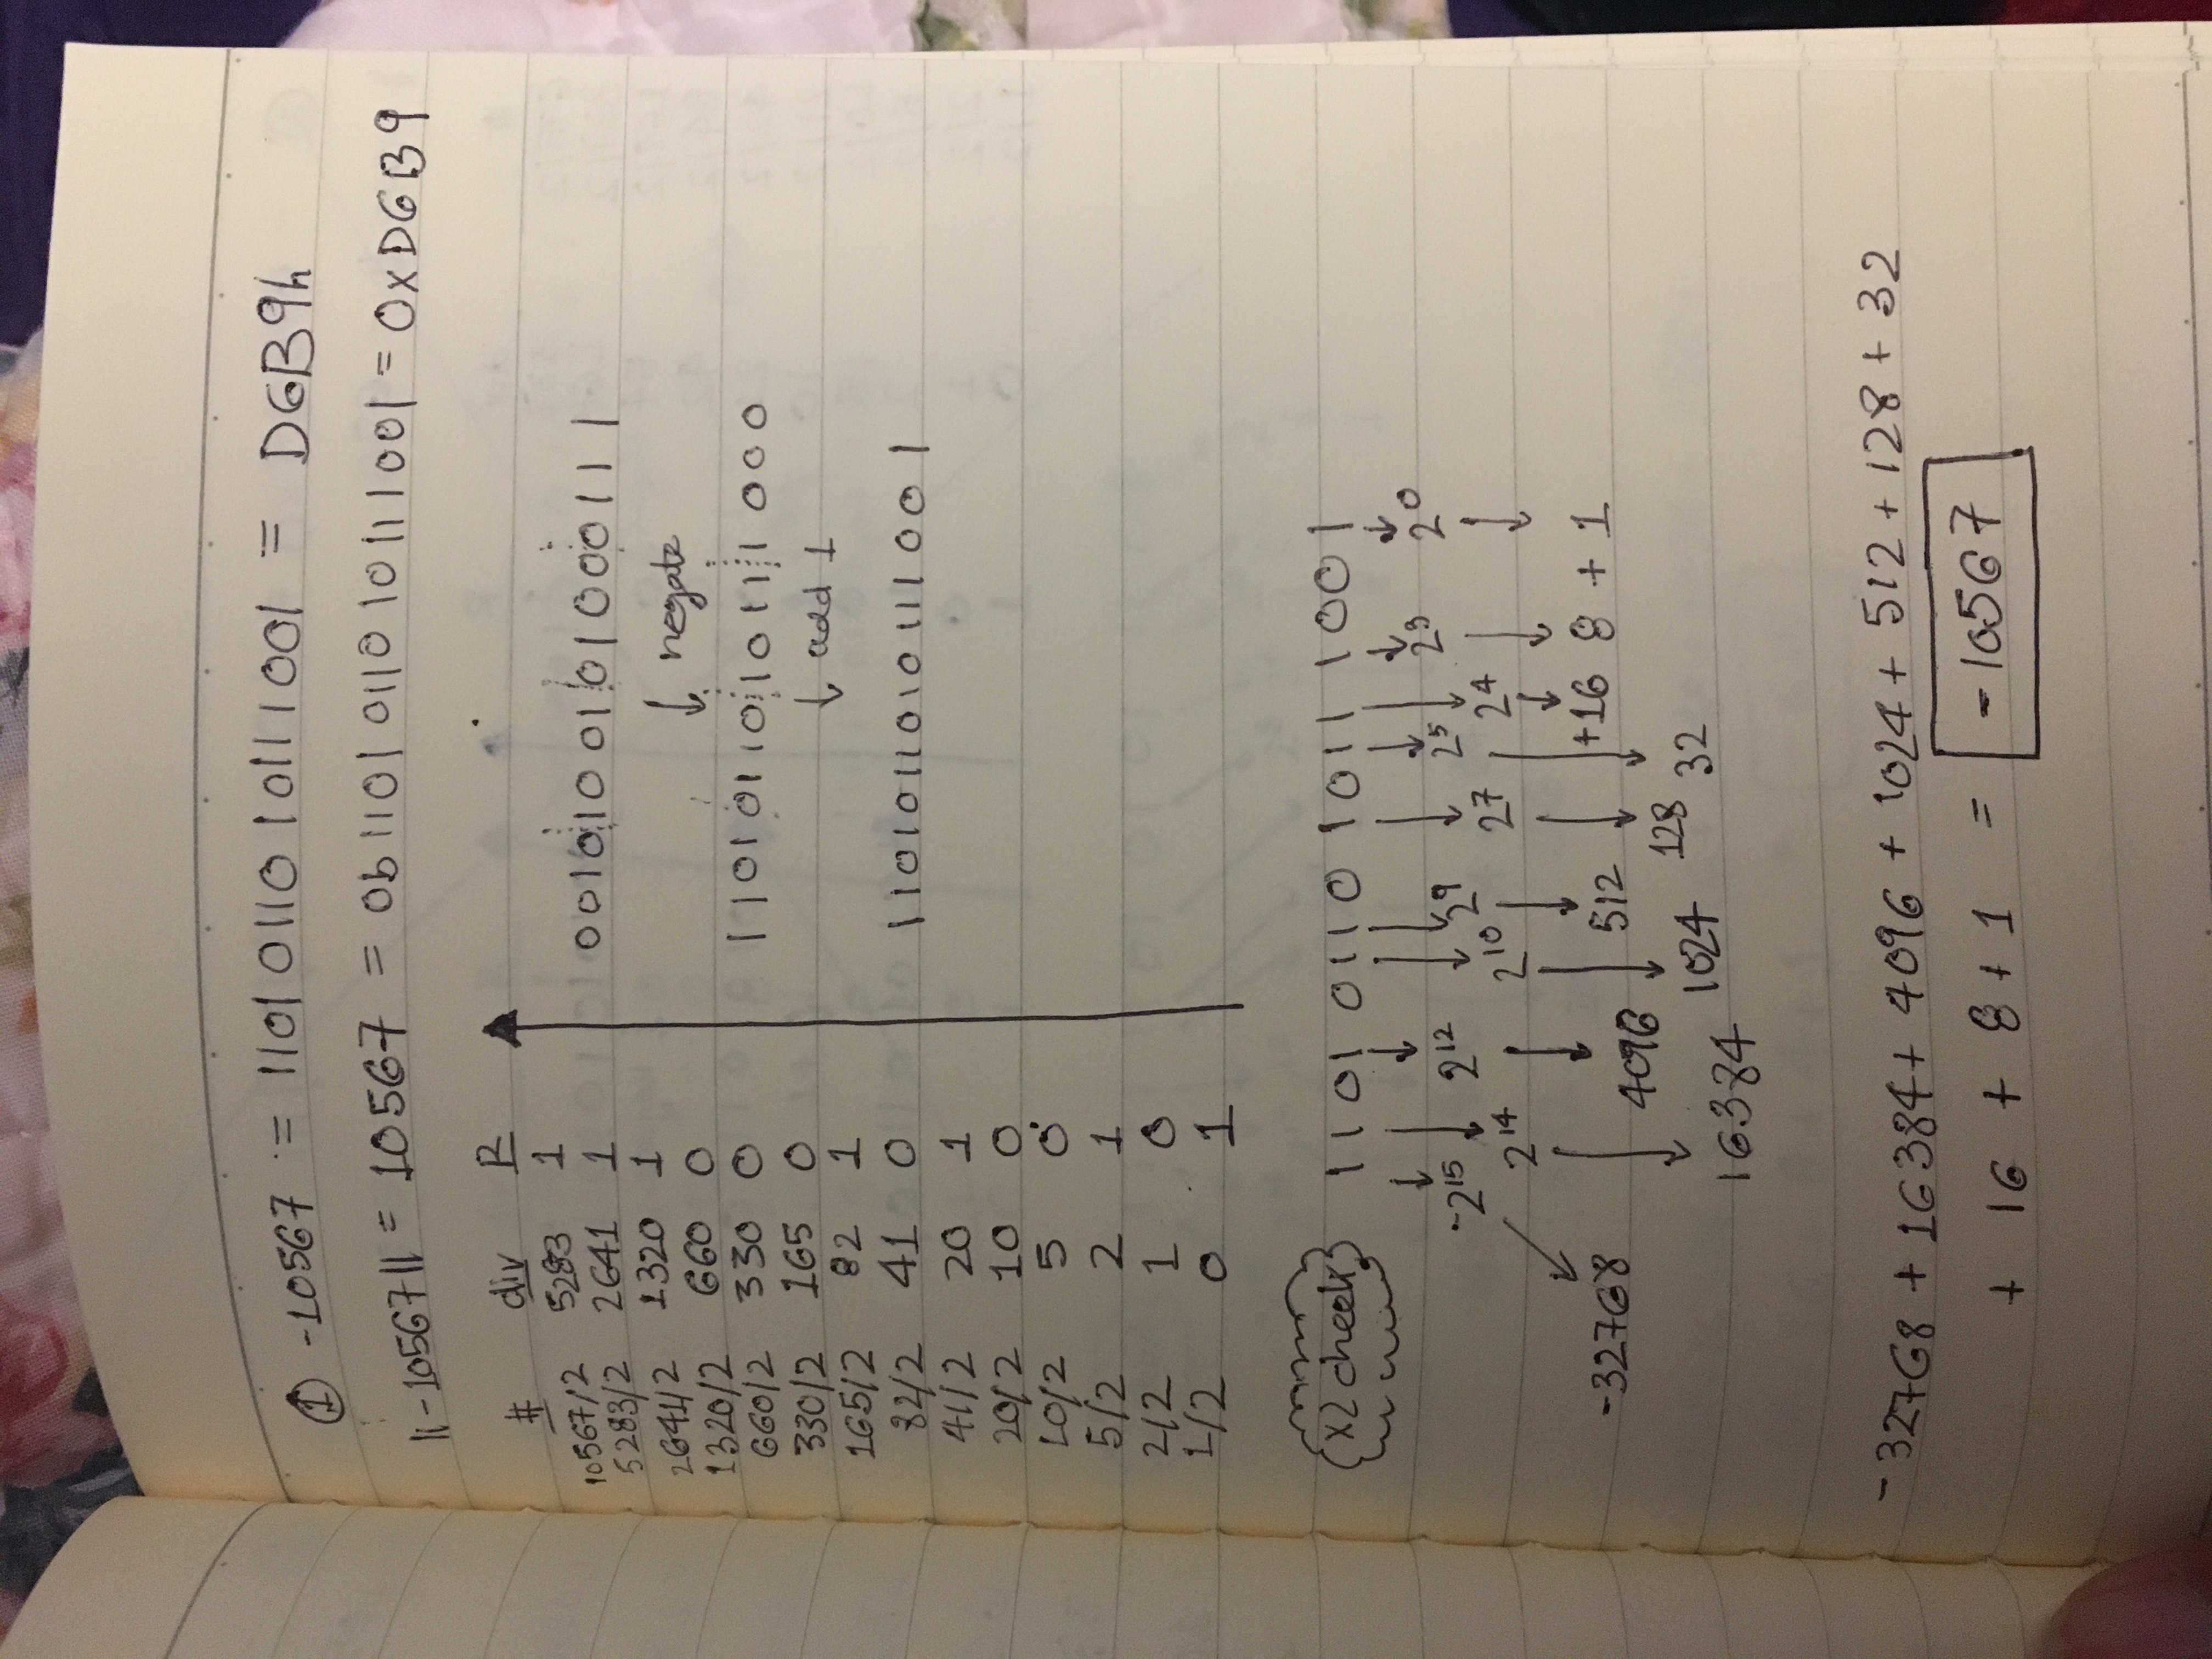 ① -10567 = 1101 0110 1011 1001 = D6B9h
||-10567|| = 10567 = 0b 1101 0110 1011 1001 = 0xD6B9
# div R
10567/2 5283 1
5283/2 2641 1
2641/2 1320 1
1320/2 660 0
660/2 330 0
330/2 165 0
165/2 82 1
82/2 41 0
41/2 20 1
20/2 10 0
10/2 5 0
5/2 2 1
2/2 1 0
1/2 0 1
0010100101000111
↓ negate
1101011010111000
↓ add 1
1101011010111001
x2 check 1101 0110 1011 1001
-2¹⁵ 2¹⁴ 2¹² 2¹⁰ 2⁹ 2⁷ 2⁵ 2⁴ 2³ 2⁰
-32768 16384 4096 1024 512 128 32 +16 8 + 1
-32768 + 16384 + 4096 + 1024 + 512 + 128 + 32
+ 16 + 8 + 1 = -10567